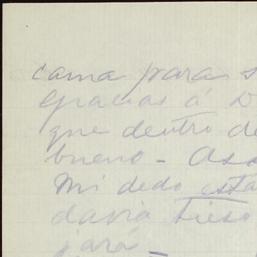 cama para s
gracias á D
que dentro de
bueno - Asa
Mi dedo esta
davia tieso
jará -